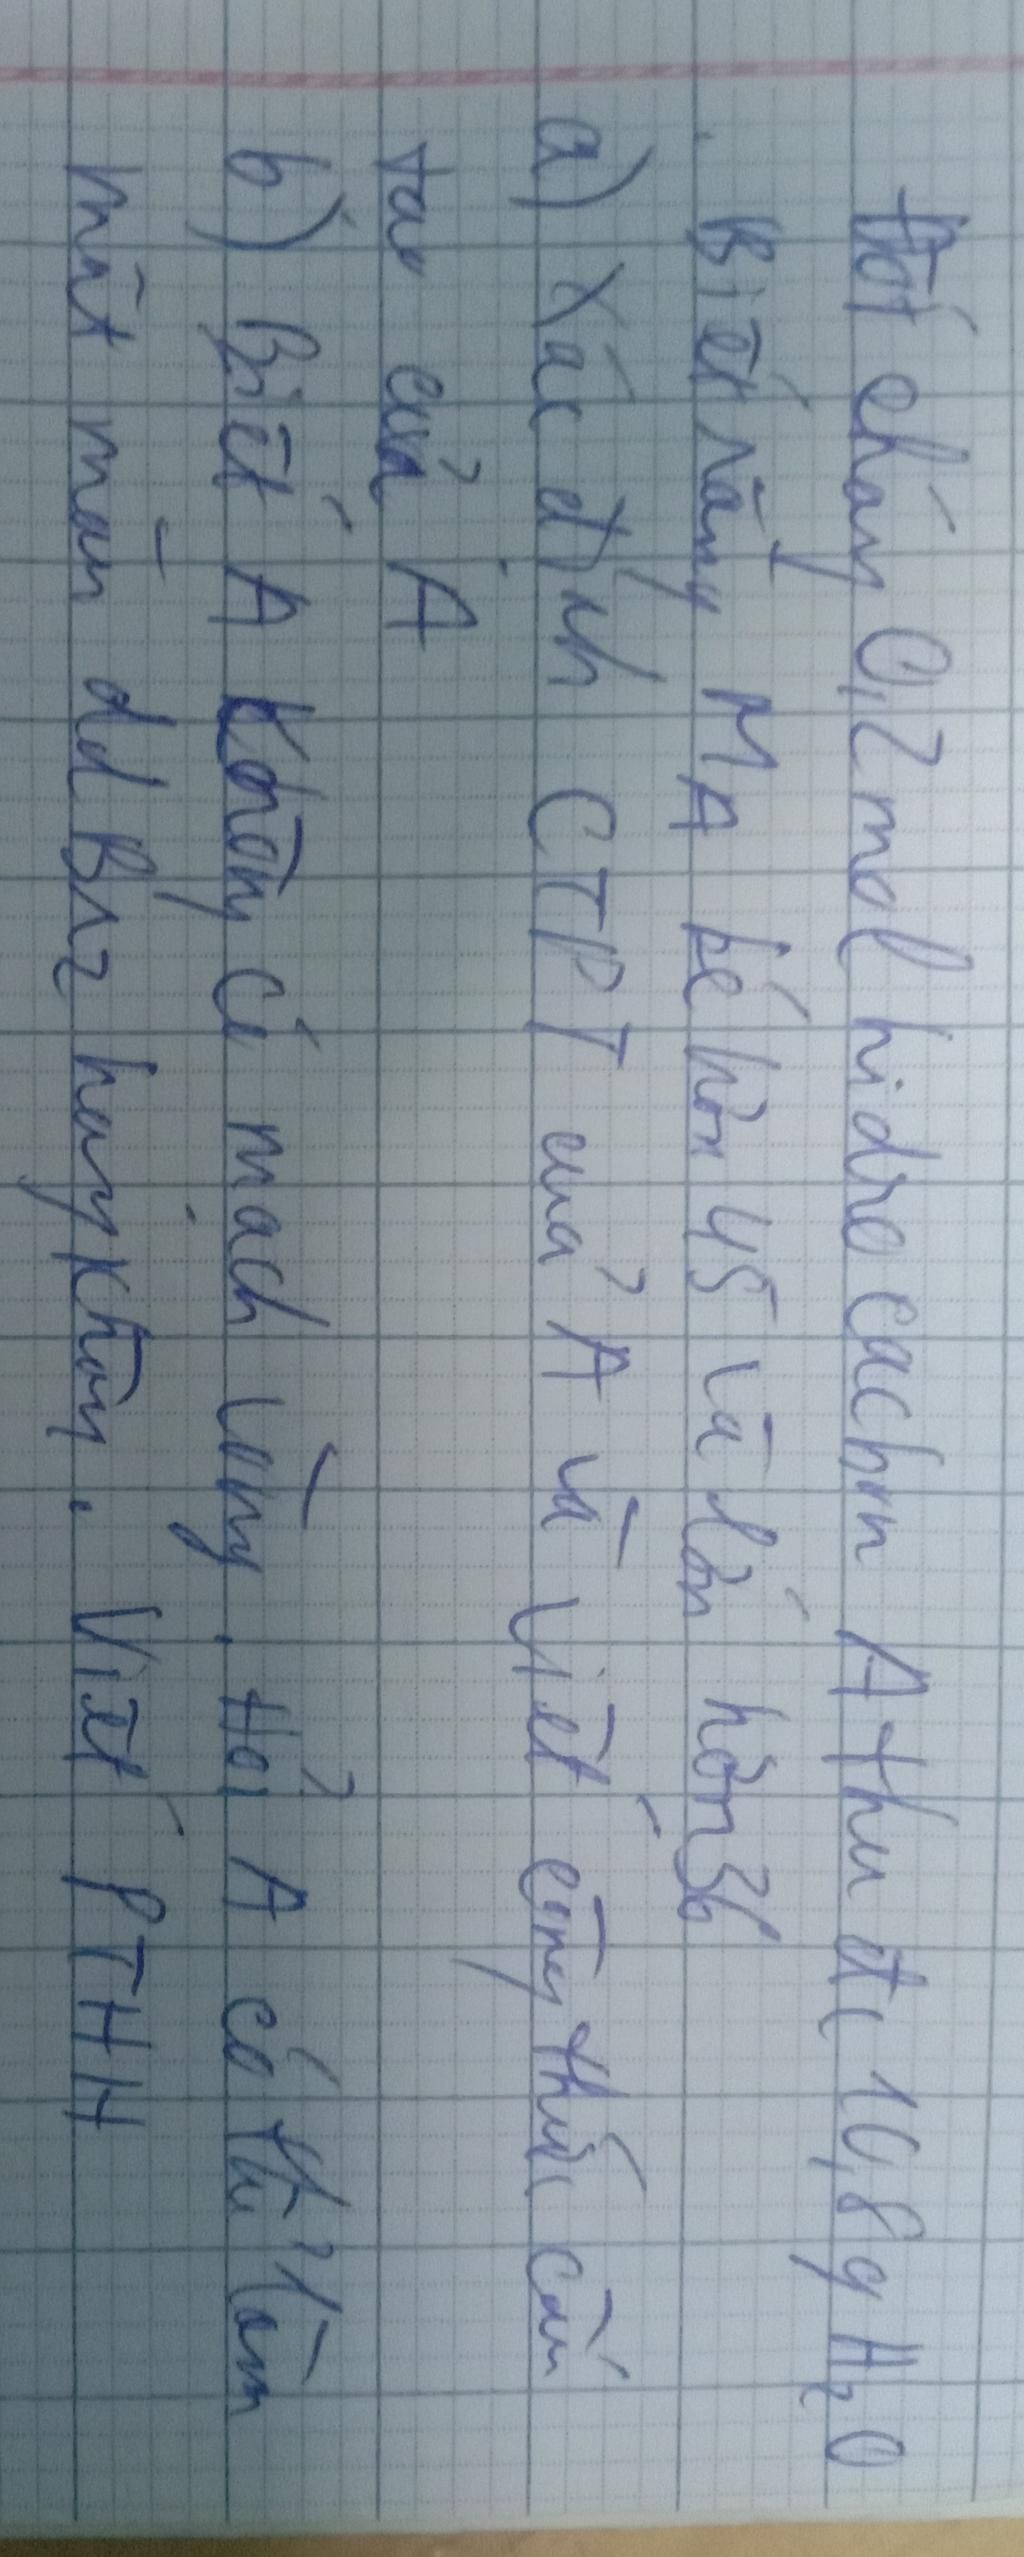 Đốt cháy 0,2 mol hidrocacbon A thu đc 10,8g H₂O
. Biết rằng MA bé hơn 45 và lớn hơn 36
a) Xác định CTPT của A và viết công thức cấu
tạo của A
b) Biết A không có mạch vòng. Hỏi A có thể làm
mất màu dd Br₂ hay không. Viết PTHH